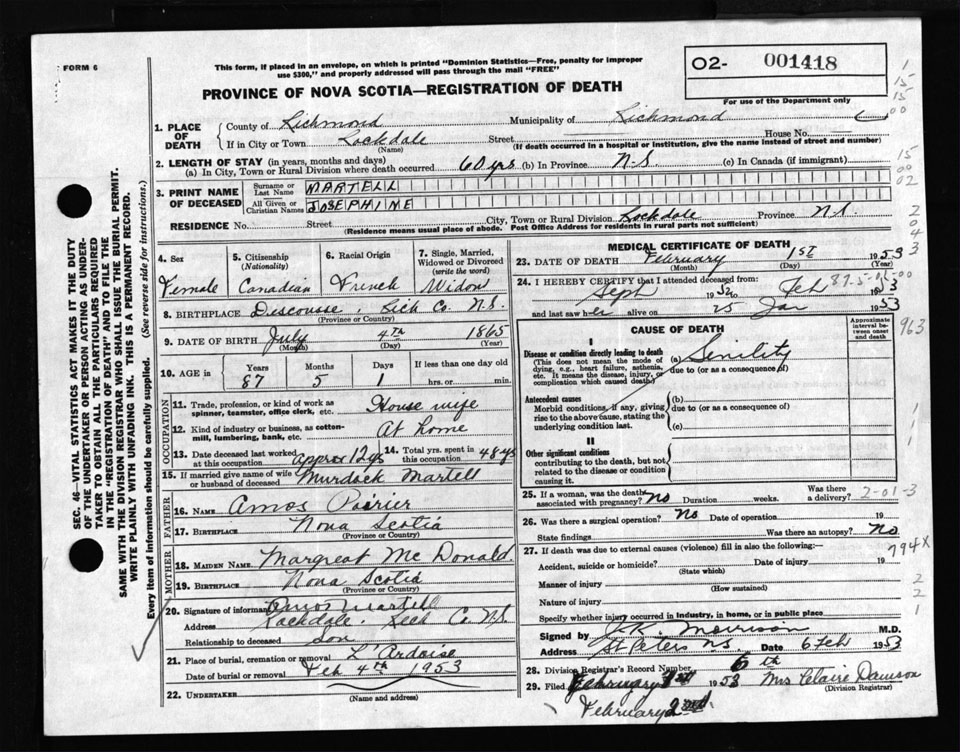 FORM 6
This form, if placed in an envelope, on which is printed "Dominion Statistics—Free, penalty for improper
use $300," and properly addressed will pass through the mail "FREE"
O2- 001418
For use of the Department only
PROVINCE OF NOVA SCOTIA—REGISTRATION OF DEATH
1. PLACE OF DEATH
County of Richmond Municipality of Richmond
If in City or Town Rockdale Street House No. —
(Name) (If death occurred in a hospital or institution, give the name instead of street and number)
2. LENGTH OF STAY (in years, months and days)
(a) In City, Town or Rural Division where death occurred 60 yrs (b) In Province N.S (c) In Canada (if immigrant)
3. PRINT NAME OF DECEASED
Surname or Last Name MARTELL
All Given or Christian Names JOSEPHINE
RESIDENCE No. Street City, Town or Rural Division Rockdale Province N.S.
(Residence means usual place of abode. Post Office Address for residents in rural parts not sufficient)
4. Sex
Female
5. Citizenship
(Nationality)
Canadian
6. Racial Origin
French
7. Single, Married, Widowed or Divorced
(write the word)
Widow
8. BIRTHPLACE Descousse, Rich Co. N.S.
(Province or Country)
9. DATE OF BIRTH July 4th 1865
(Month) (Day) (Year)
10. AGE in
Years Months Days If less than one day old
87 5 1 hrs. or min.
OCCUPATION
11. Trade, profession, or kind of work as spinner, teamster, office clerk, etc. House wife
12. Kind of industry or business, as cotton-mill, lumbering, bank, etc. At home
13. Date deceased last worked at this occupation approx 12 yrs
14. Total yrs. spent in this occupation 48 yrs
15. If married give name of wife or husband of deceased Murdock Martell
FATHER
16. NAME Amos Poirier
17. BIRTHPLACE Nova Scotia
(Province or Country)
MOTHER
18. MAIDEN NAME Margreat Mc Donald
19. BIRTHPLACE Nova Scotia
(Province or Country)
20. Signature of informant Amos Martell
Address Rockdale. Rich Co. N.S.
Relationship to deceased son
21. Place of burial, cremation or removal L'Ardoise
Date of burial or removal Feb 4th 1953
22. UNDERTAKER
(Name and Address)
MEDICAL CERTIFICATE OF DEATH
23. DATE OF DEATH February 1st 1953
(Month) (Day) (Year)
24. I HEREBY CERTIFY that I attended deceased from:
Sept 1952 to Feb 1953
and last saw her alive on 25 Jan 1953
CAUSE OF DEATH
Approximate interval between onset and death
I
Disease or condition directly leading to death
(This does not mean the mode of dying, e.g., heart failure, asthenia, etc. It means the disease, injury, or complication which caused death.)
(a) Senility
due to (or as a consequence of)
Antecedent causes
Morbid conditions, if any, giving rise to the above cause, stating the underlying condition last.
(b)
due to (or as a consequence of)
(c)
II
Other significant conditions
contributing to the death, but not related to the disease or condition causing it.
25. If a woman, was the death associated with pregnancy? No Duration weeks. Was there a delivery?
2-01-3
26. Was there a surgical operation? No Date of operation 19
State findings Was there an autopsy? No
794X
27. If death was due to external causes (violence) fill in also the following:—
Accident, suicide or homicide? Date of injury 19
(State which)
Manner of injury
(How sustained)
Nature of injury
Specify whether injury occurred in industry, in home, or in public place
Signed by Morrison M.D.
Address St Peters N.S. Date 6 Feb 1953
28. Division Registrar's Record Number 6th
29. Filed February 1953 Mrs Claire Dawson
(Division Registrar)
February 2nd
SEC. 46—VITAL STATISTICS ACT MAKES IT THE DUTY
OF THE UNDERTAKER OR PERSON ACTING AS UNDER-
TAKER TO OBTAIN ALL THE PARTICULARS REQUIRED
IN THE "REGISTRATION OF DEATH" AND TO FILE THE
SAME WITH THE DIVISION REGISTRAR WHO SHALL ISSUE THE BURIAL PERMIT.
WRITE PLAINLY WITH UNFADING INK. THIS IS A PERMANENT RECORD.
Every item of information should be carefully supplied. (See reverse side for instructions.)
1
15
15
00
15
00
02
2
0
4
3
963
1
1
1
2
2
1